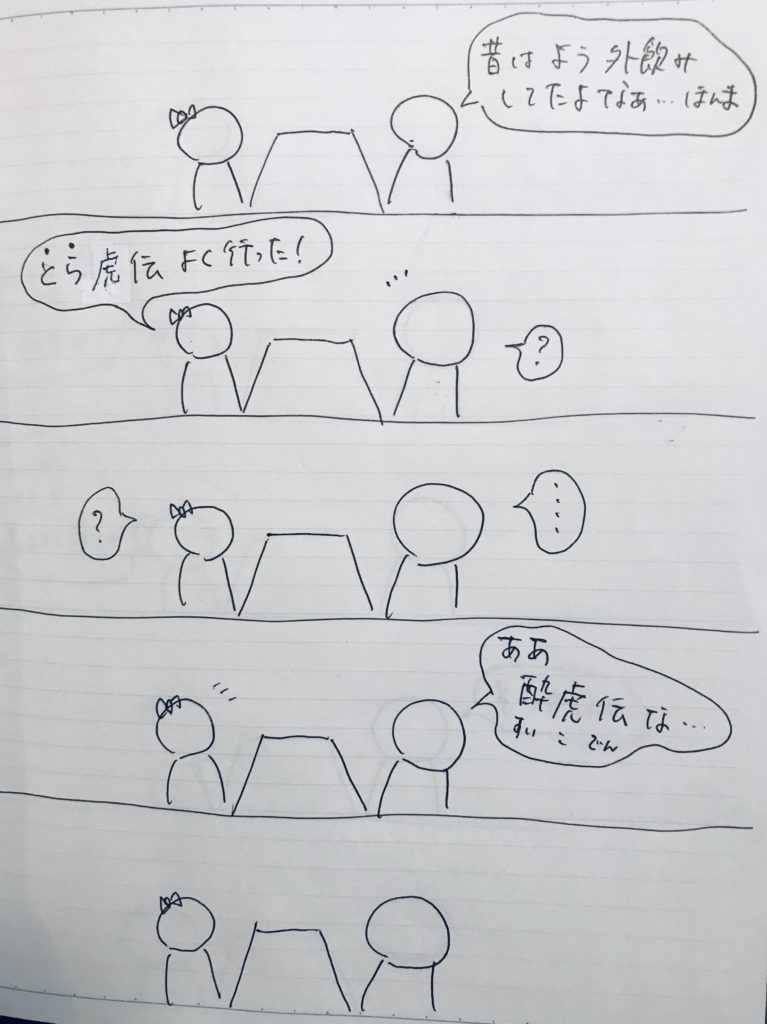 昔は よう 外飲み
してたよなぁ… ほんま
とら虎伝 よく行った!
?
?
....
ああ
酔虎伝な…
すいこでん